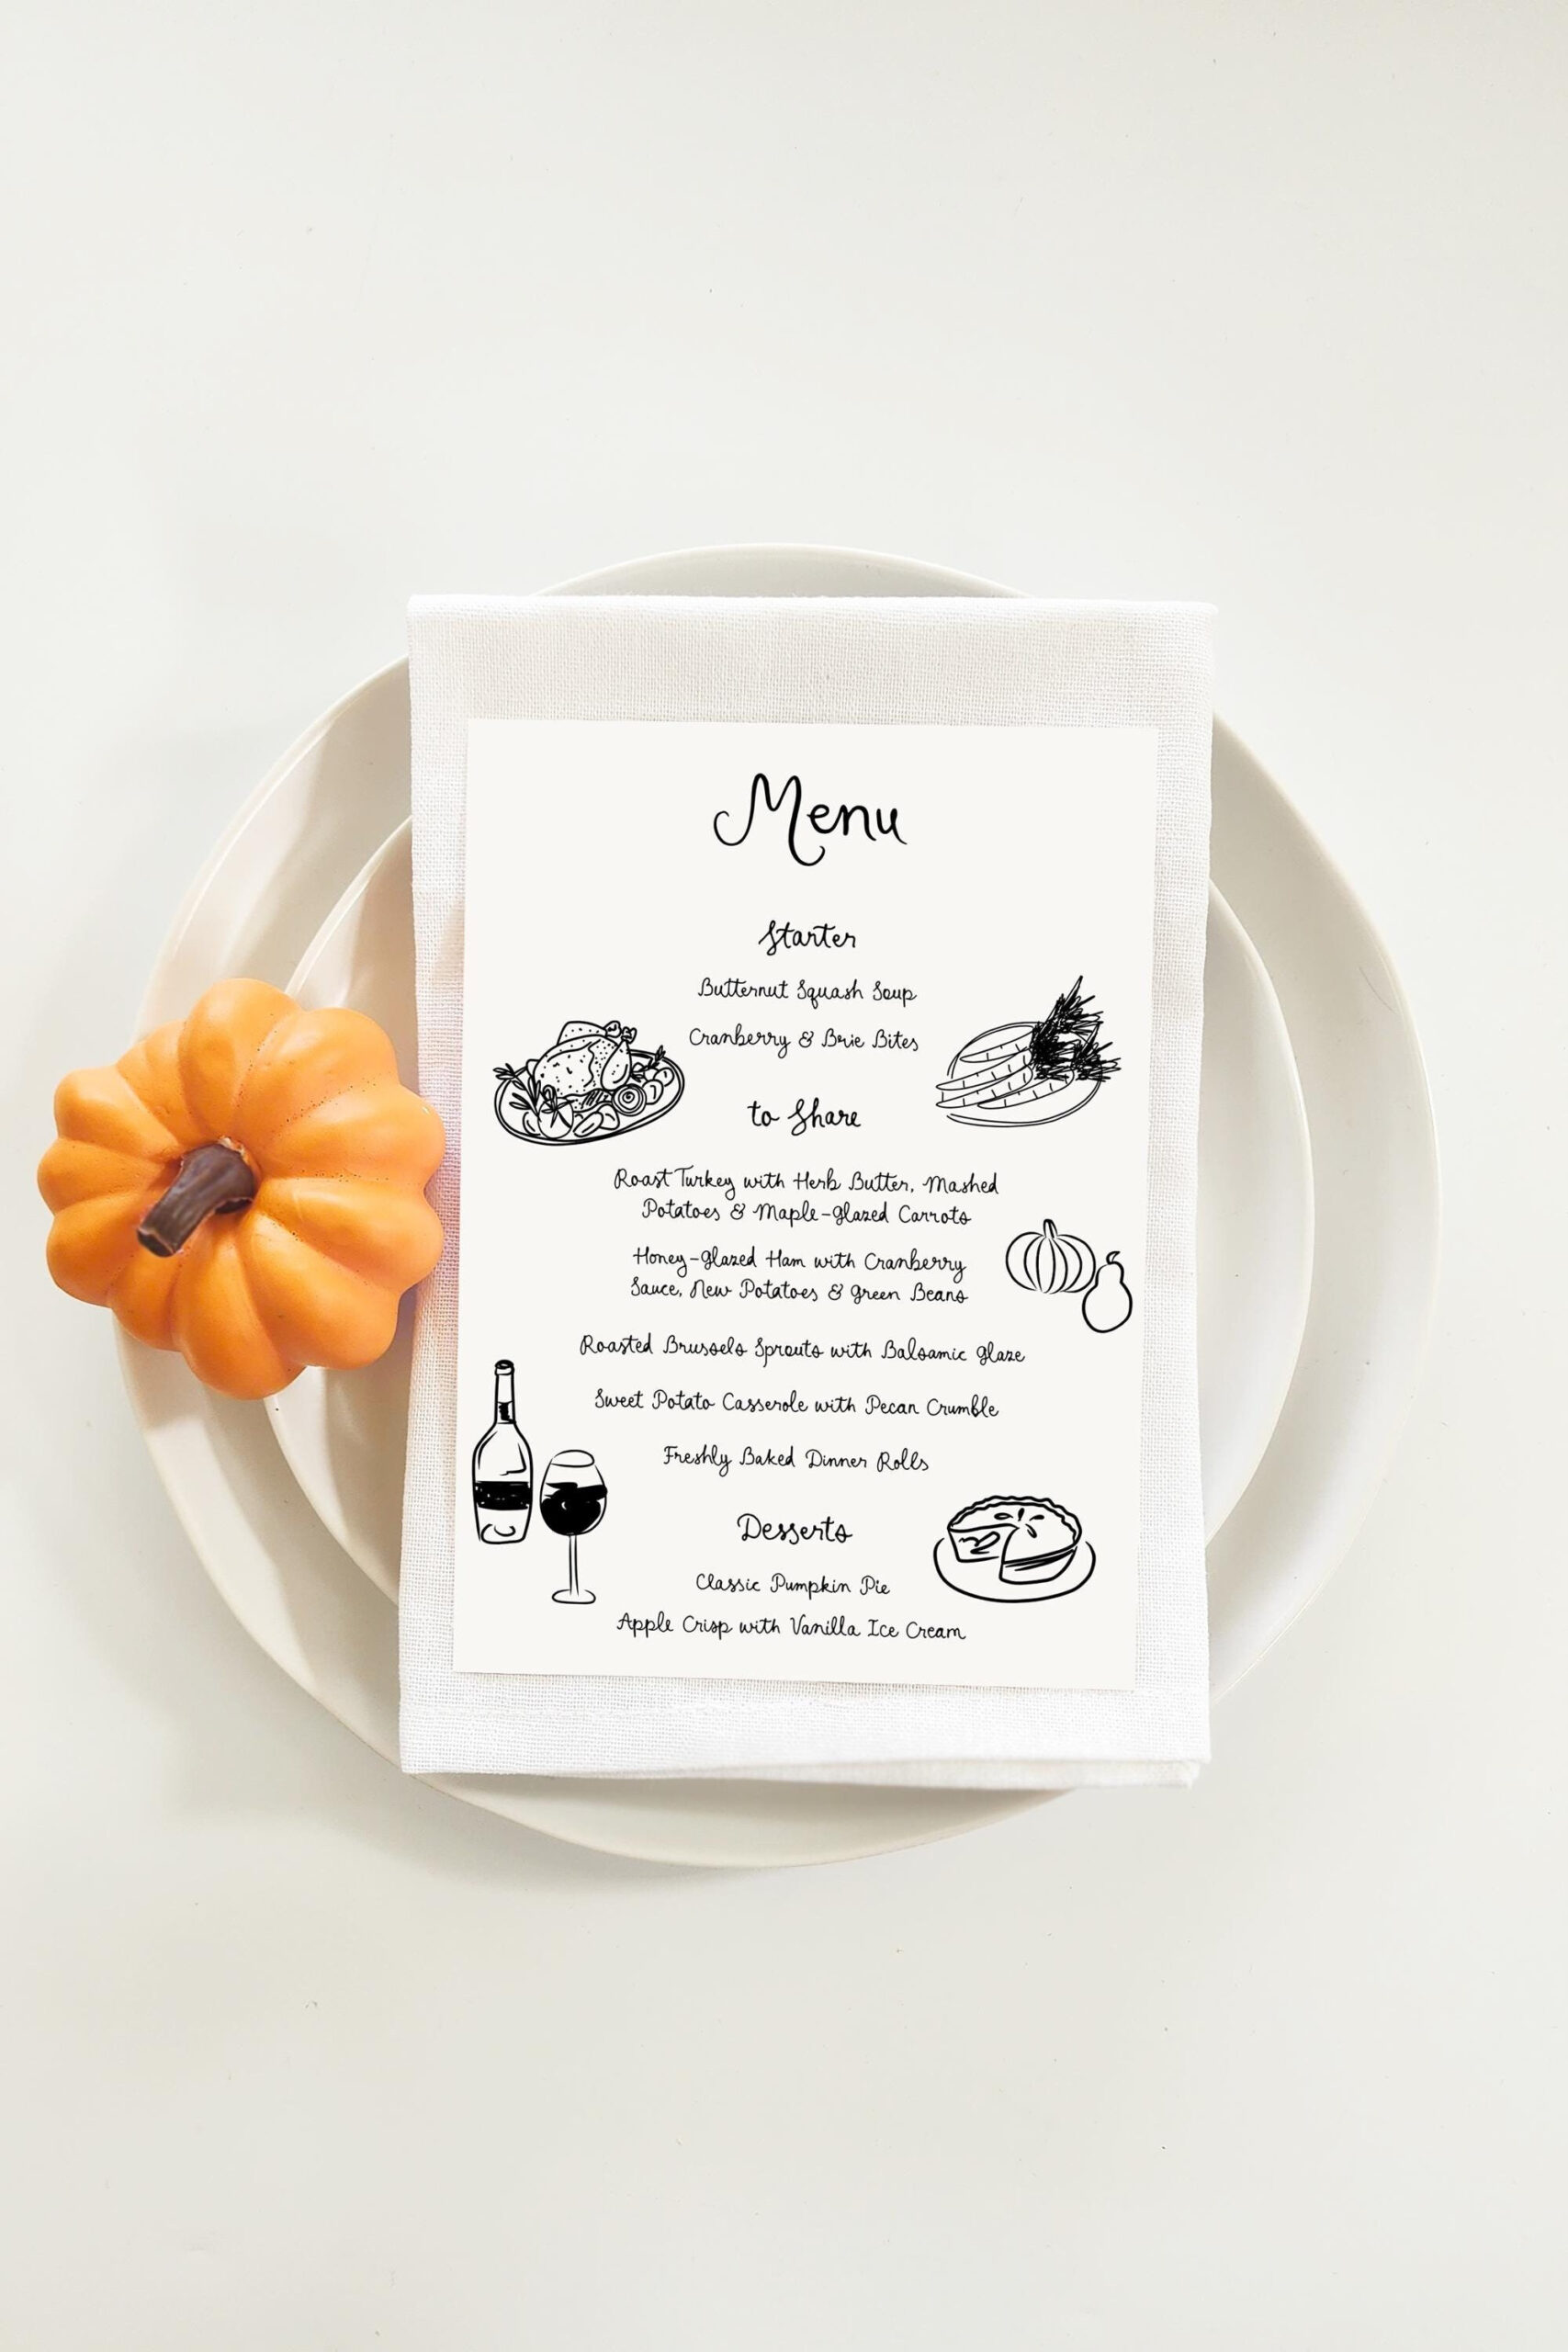 Menu
Starter
Butternut Squash Soup
Cranberry & Brie Bites
to Share
Roast Turkey with Herb Butter, Mashed
Potatoes & Maple-Glazed Carrots
Honey-Glazed Ham with Cranberry
Sauce, New Potatoes & Green Beans
Roasted Brussels Sprouts with Balsamic Glaze
Sweet Potato Casserole with Pecan Crumble
Freshly Baked Dinner Rolls
Desserts
Classic Pumpkin Pie
Apple Crisp with Vanilla Ice Cream